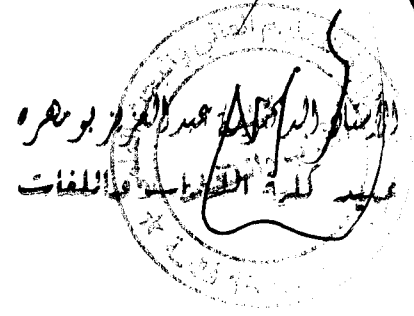 الأستاذ الدكتور عبد العزيز بومهره
عميد كلية الآداب واللغات